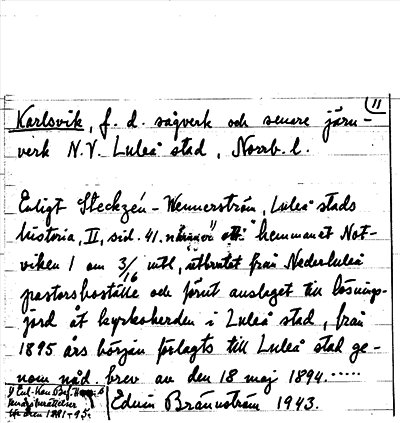 11
Karlsvik, f. d. sågverk och senare järn-
verk N.V. Luleå stad, Norrb. l.
Enligt Steckzén-Wennerström, Luleå stads
historia, II, sid. 41. hemmanet Not-
viken 1 om 3/16 mtl, utbrutet från Nederluleå
pastorsboställe och förut anslaget till lösnings-
jord åt kyrkoherden i Luleå stad, från
1895 års början förlagts till Luleå stad ge-
nom nåd. brev av den 18 maj 1894.....
Edvin Brännström 1943.